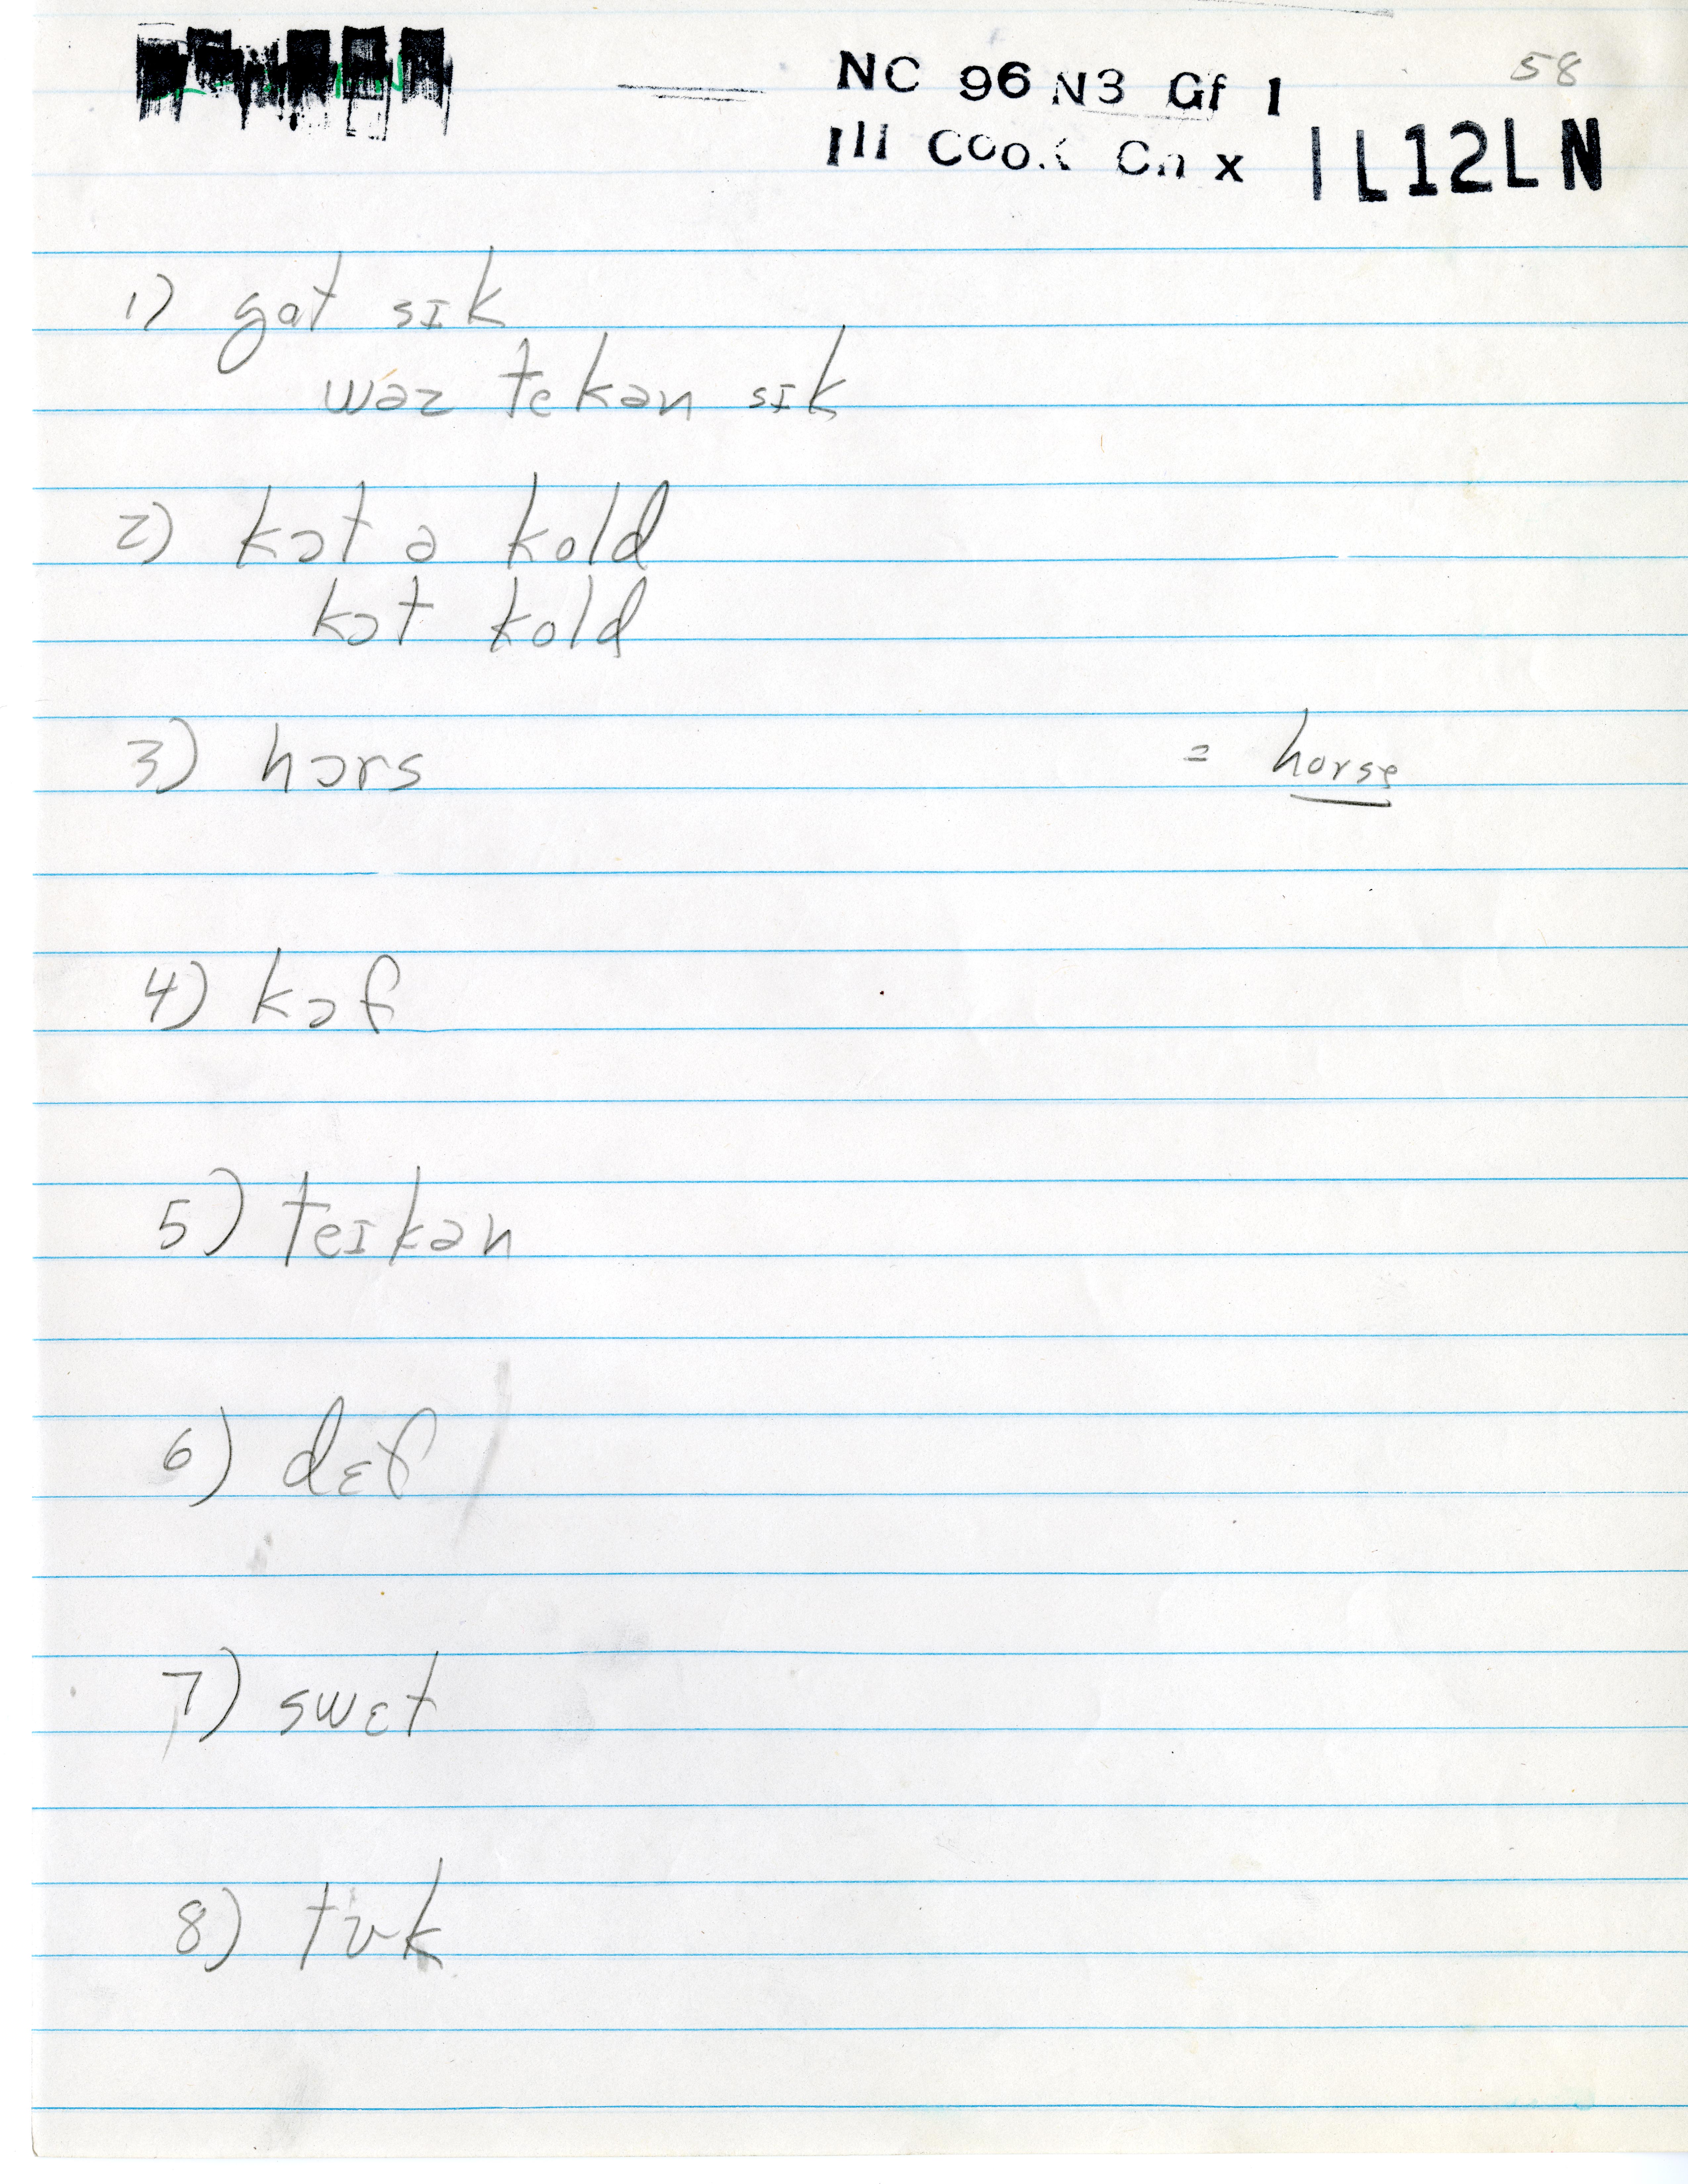 58
NC 96 N3 Gf 1
Ill Cook Cn x IL12LN
1) gat sɪk
wəz tekən sɪk
2) kɔt ə kold
kɔt kold
3) hɔrs = horse
4) kɔf
5) teɪkən
6) dɛf
7) swɛt
8) tʊk